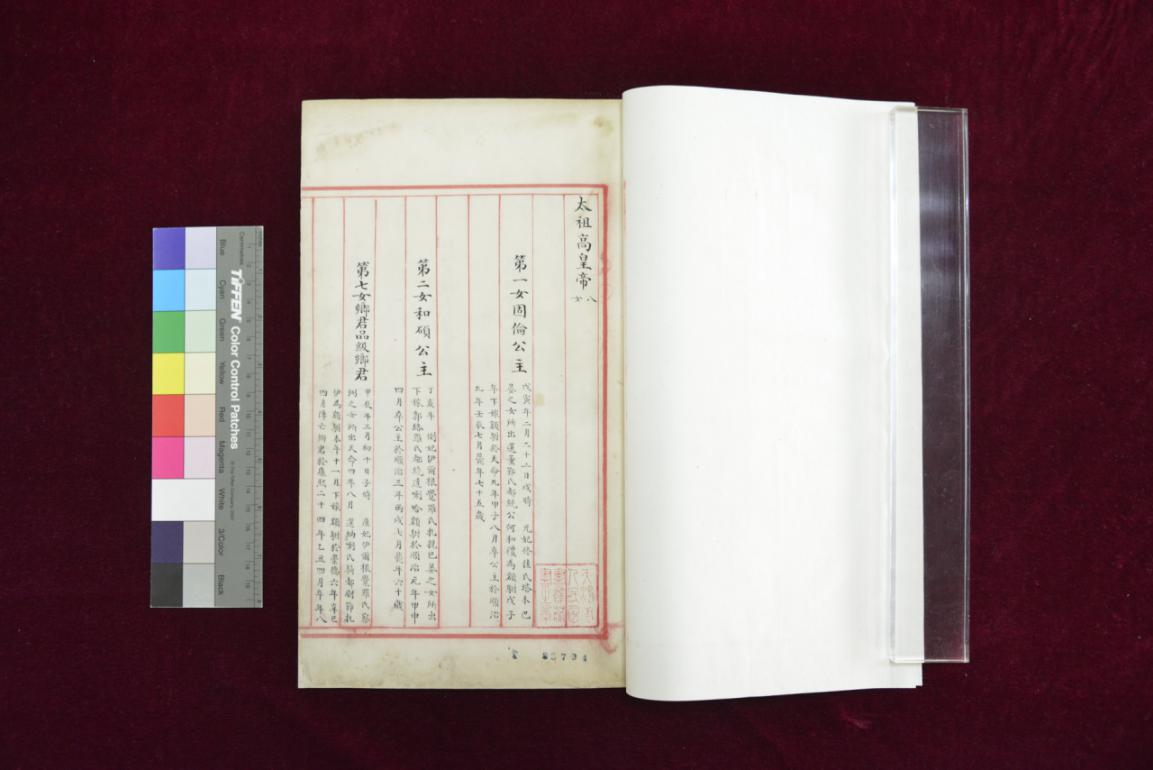 太祖高皇帝
八女
第一女固倫公主
戊寅年二月二十二日戌時 元妃佟佳氏塔本巴
晏之女所出選董鄂氏都統公何和禮為額駙戊子
年下嫁額駙於天命九年甲子八月卒公主於順治
九年壬辰七月薨年七十五歲
第二女和碩公主
丁亥年 側妃伊爾根覺羅氏札親巴晏之女所出
下嫁郭絡羅氏都統達爾哈額駙於順治元年甲申
四月卒公主於順治三年丙戌七月薨年六十歲
第七女鄉君品級鄉君
甲辰年三月初十日子時 庶妃伊爾根覺羅氏察
弼之女所出天命四年八月 選納喇氏騎都尉鄂札
伊為額駙本年十一月下嫁額駙於崇德六年辛巳
四月陣亡鄉君於康熙二十四年乙丑四月卒年八
TIFFEN Color Control Patches
Centimetres
Blue
Cyan
Green
Yellow
Red
Magenta
White
3/Color
Black